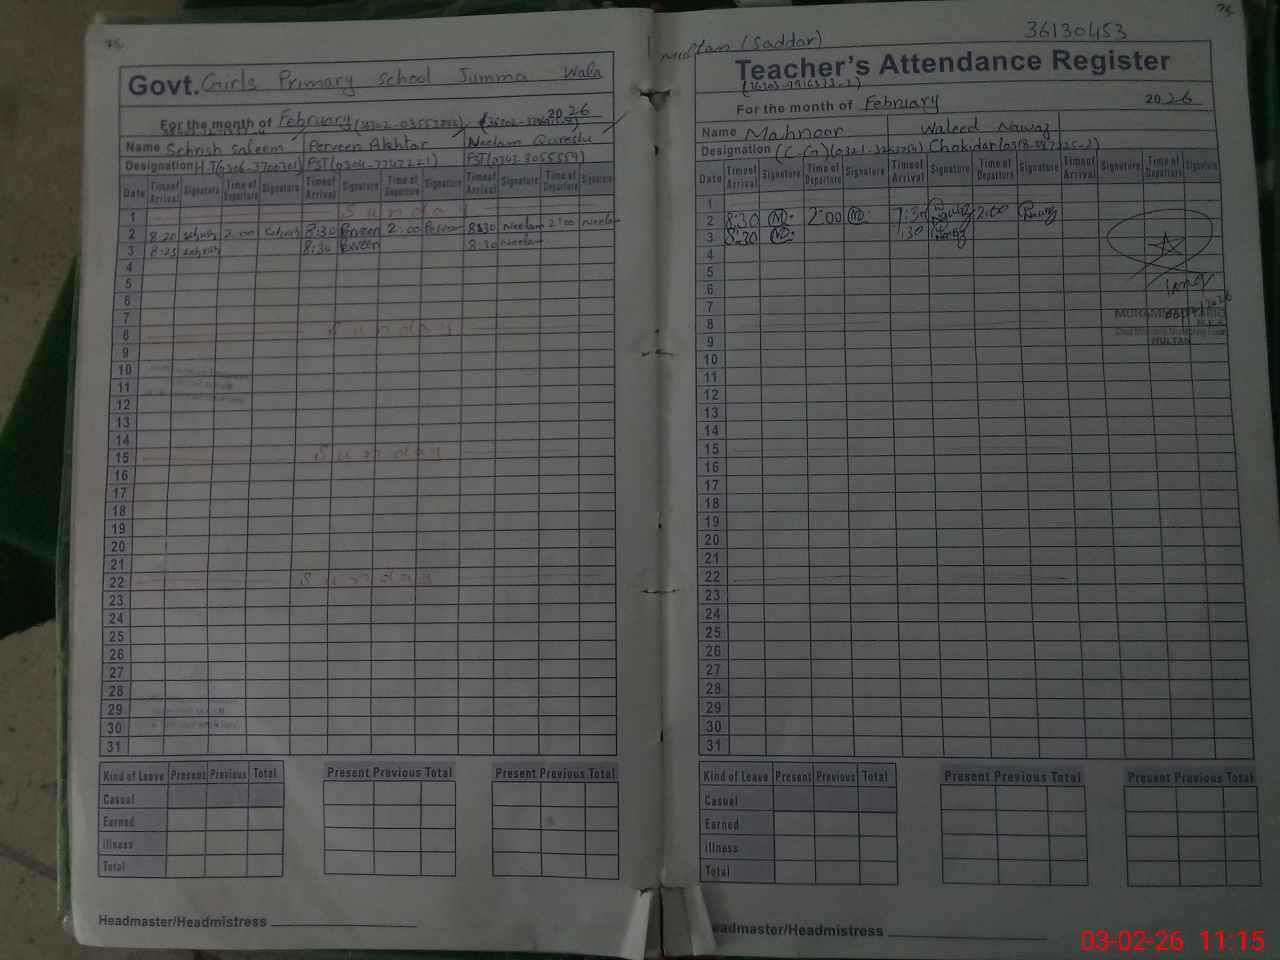 75
Govt. Girls Primary School Jumma Wala
For the month of February 2026
Name Sehrish Saleem Perveen Akhtar Neelam Qureshi
Designation H.T PST PST
Date Time of Arrival Signature Time of Departure Signature Time of Arrival Signature Time of Departure Signature Time of Arrival Signature Time of Departure Signature
1 Sunday
2 8:20 Sehrish 2:00 Sehrish 8:30 Perveen 2:00 Perveen 8:30 Neelam 2:00 Neelam
3 8:25 Sehrish 8:30 Perveen 8:30 Neelam
4
5
6
7
8 Sunday
9
10
11
12
13
14
15 Sunday
16
17
18
19
20
21
22 Sunday
23
24
25
26
27
28
29
30
31
Kind of Leave Present Previous Total Present Previous Total Present Previous Total
Casual
Earned
illness
Total
Headmaster/Headmistress
Multan (Saddar) 36130453
Teacher's Attendance Register
For the month of February 2026
Name Mahnoor Waleed Nawaz
Designation (C.G) Chokidar
Date Time of Arrival Signature Time of Departure Signature Time of Arrival Signature Time of Departure Signature Time of Arrival Signature Time of Departure Signature
1
2 8:30 2:00 7:30 Nawaz 2:00 Nawaz
3 8:30 :30 Nawaz
4
5
6
7
8
9
10
11
12
13
14
15
16
17
18
19
20
21
22
23
24
25
26
27
28
29
30
31
MULTAN
Kind of Leave Present Previous Total Present Previous Total Present Previous Total
Casual
Earned
illness
Total
eadmaster/Headmistress
03-02-26 11:15